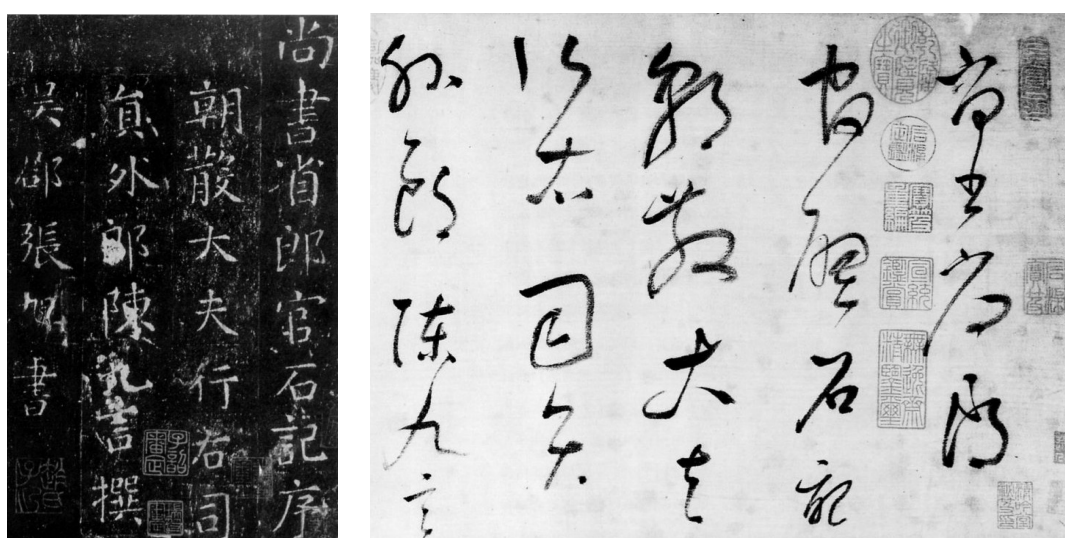 尚書省郎官石記序
朝散大夫行右司
員外郎陳九言撰
吳郡張旭書
尚書省郎
官廳石記
朝散大夫
行右司員
外郎陳九言
乾隆御覽之寶